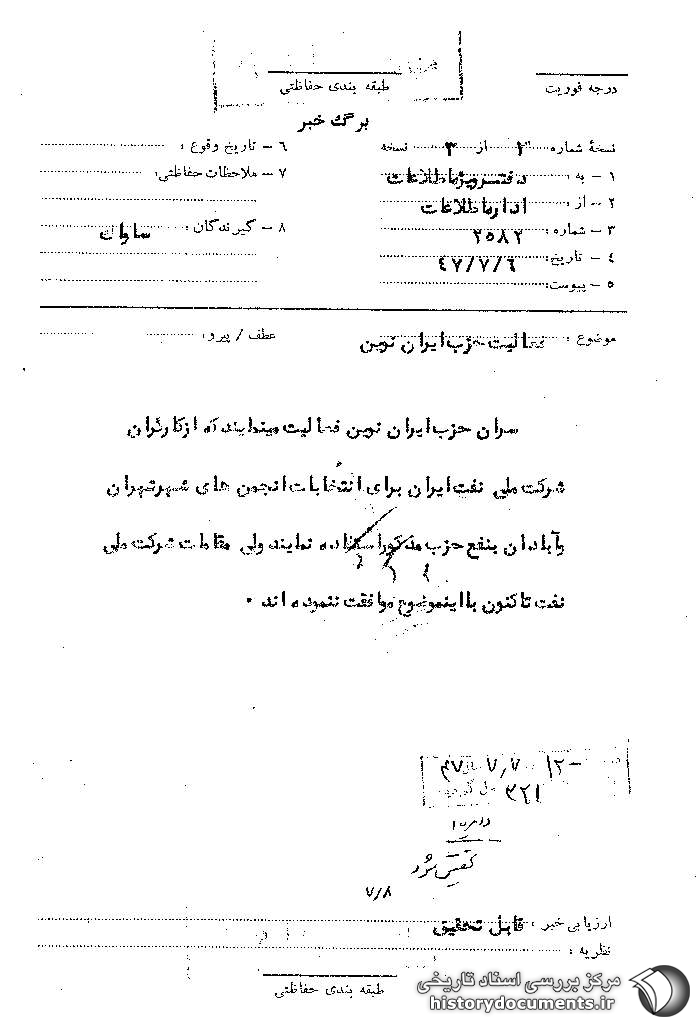 درجه فوریت
طبقه بندی حفاظتی
برگ خبر
نسخهٔ شماره ۲ از ۳ نسخه
۱ - به: دفترویژه اطلاعات
۲ - از: اداره اطلاعات
۳ - شماره: ۲۵۸۲
۴ - تاریخ: ۴۷/۷/۶
۵ - پیوست:
۶ - تاریخ وقوع:
۷ - ملاحظات حفاظتی:
۸ - گیرندگان: ساواک
موضوع: فعالیت حزب ایران نوین
عطف / پیرو:
سران حزب ایران نوین فعالیت مینمایند که از کارگران
شرکت ملی نفت ایران برای انتخابات انجمن های شهر تهران
و آبادان بنفع حزب مذکور استفاده نمایند ولی مقامات شرکت ملی
نفت تاکنون با اینموضوع موافقت ننموده اند .
۱۲- ۴۷/۷/۷
۳۲۱
۷/۸
ارزیابی خبر: قابل تحقیق
نظریه:
طبقه بندی حفاظتی
مرکز بررسی اسناد تاریخی
historydocuments.ir